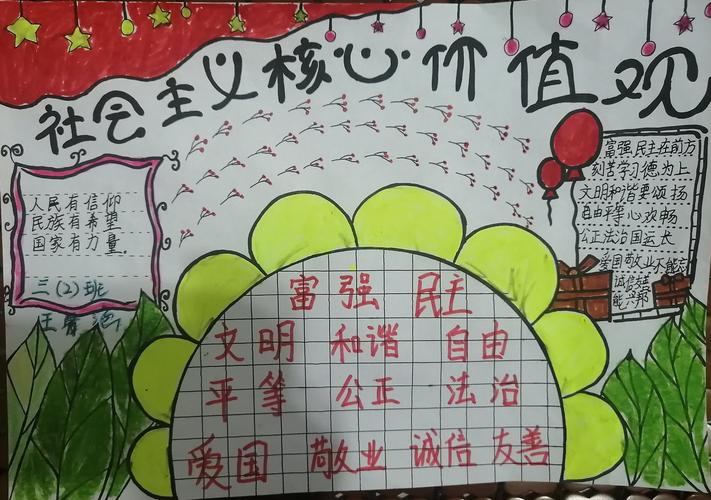 社会主义核心价值观
人民有信仰
民族有希望
国家有力量
三(2)班
富强 民主
文明 和谐 自由
平等 公正 法治
爱国 敬业 诚信 友善
富强民主在前方
刻苦学习德为上
文明和谐要颂扬
自由平等心欢畅
公正法治国运长
爱国敬业不能忘
诚信友善
能兴邦